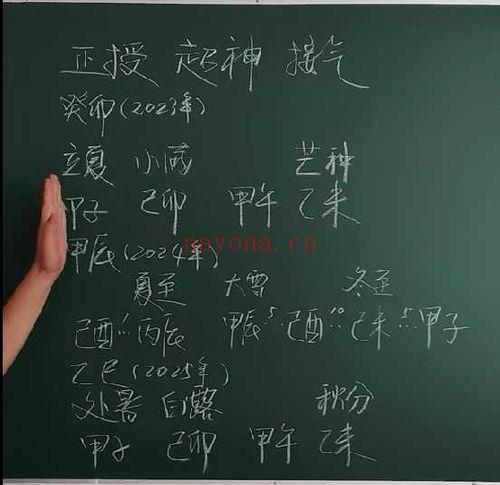 正授 超神 接气
癸卯(2023年)
立夏 小满 芒种
甲子 己卯 甲午 乙未
甲辰(2024年)
nayona.cn
夏至 大雪 冬至
己酉 丙辰 甲辰 5 己酉 10 己未 5 甲子
乙巳(2025年)
处暑 白露 秋分
甲子 己卯 甲午 乙未